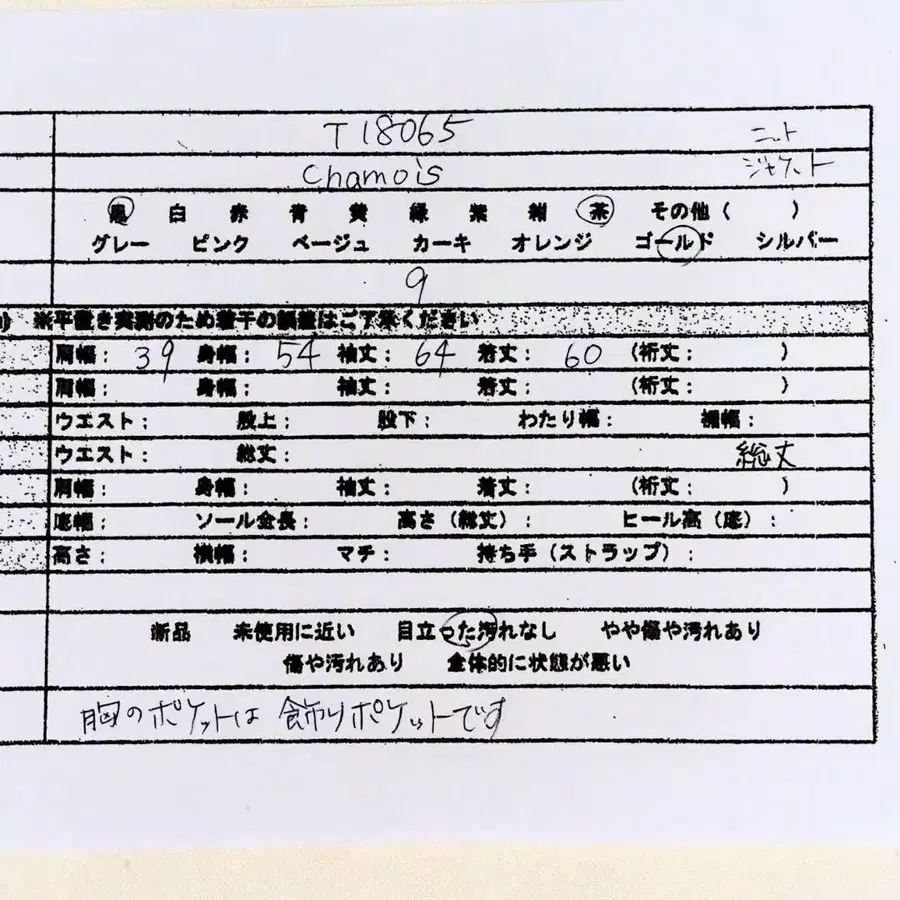 T18065 ニット
Chamois ジャケット
黒 白 赤 青 黄 緑 紫 紺 茶 その他( )
グレー ピンク ベージュ カーキ オレンジ ゴールド シルバー
9
) ※平置き実測のため若干の誤差はご了承ください
肩幅: 39 身幅: 54 袖丈: 64 着丈: 60 (裄丈: )
肩幅: 身幅: 袖丈: 着丈: (裄丈: )
ウエスト: 股上: 股下: わたり幅: 裾幅:
ウエスト: 総丈: 総丈
肩幅: 身幅: 袖丈: 着丈: (裄丈: )
底幅: ソール全長: 高さ(総丈): ヒール高(底):
高さ: 横幅: マチ: 持ち手(ストラップ):
新品 未使用に近い 目立った汚れなし やや傷や汚れあり
傷や汚れあり 全体的に状態が悪い
胸のポケットは飾りポケットです